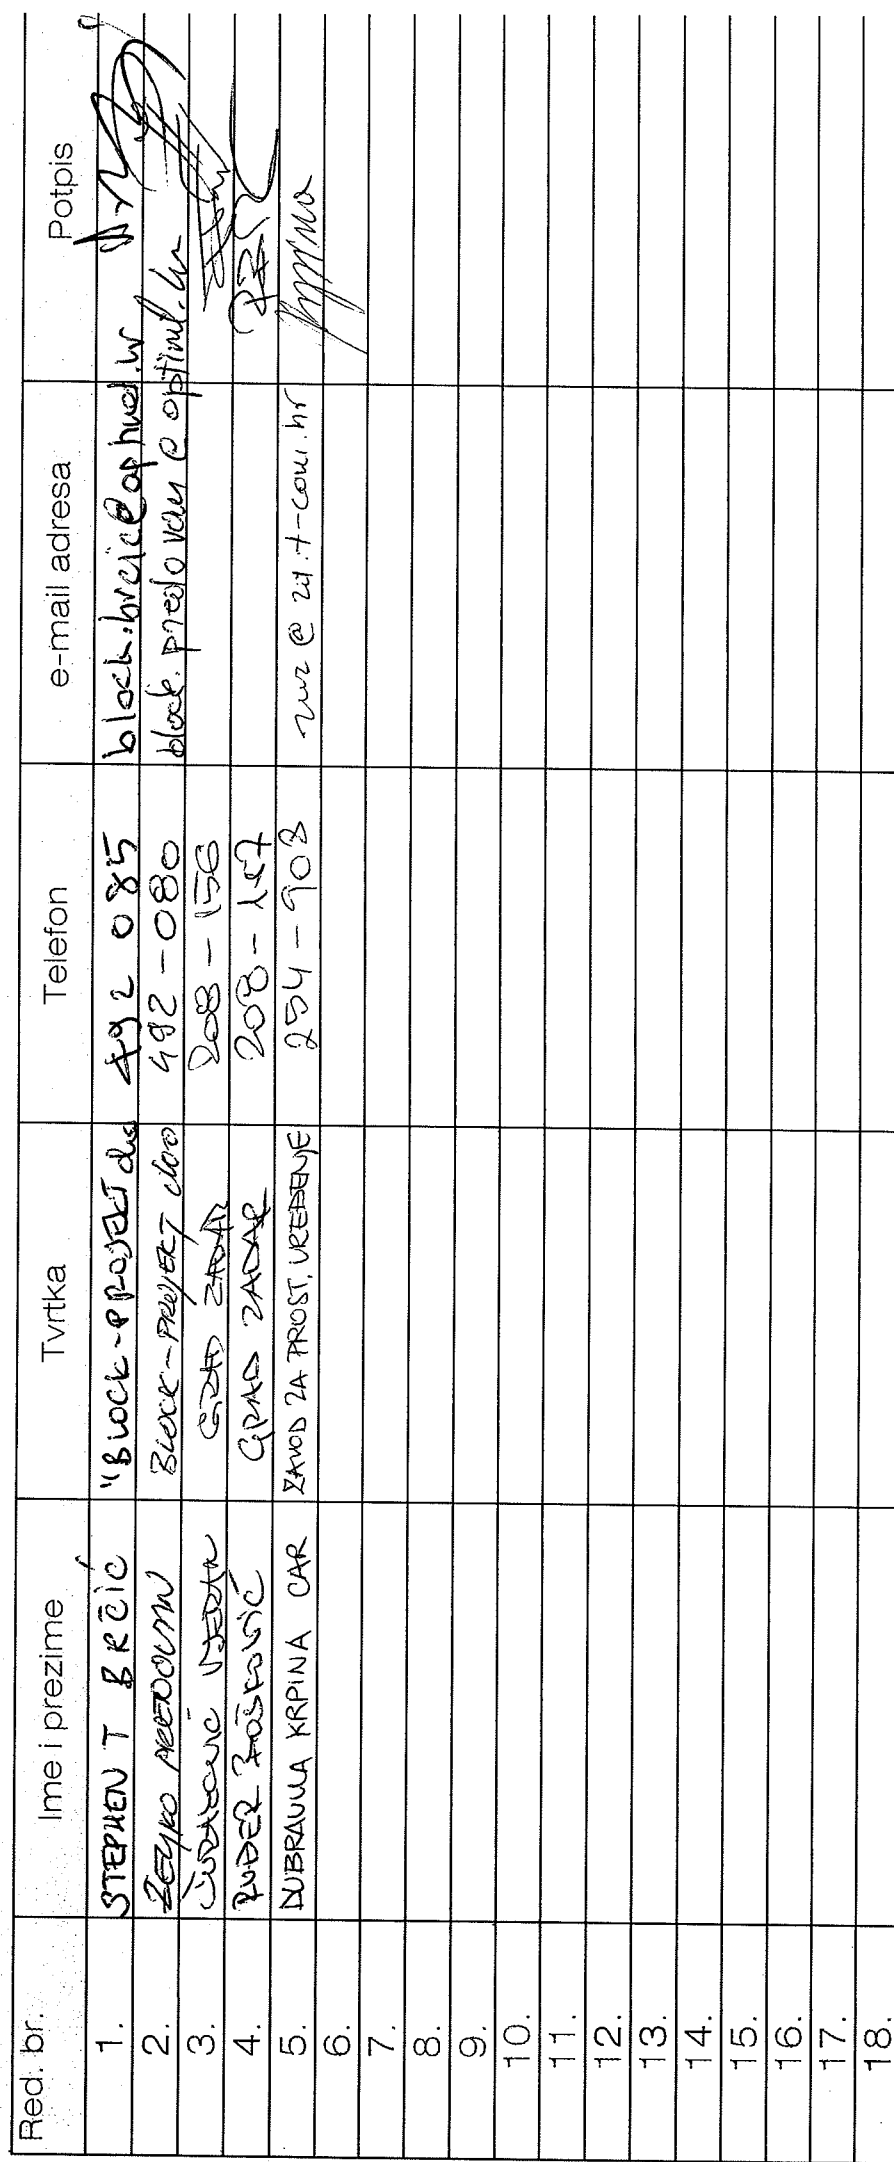 Red. br. Ime i prezime Tvrtka Telefon e-mail adresa Potpis
1. STEPHEN T BRČIĆ "BLOCK-PROJEKT doo 492 085 block.brcic@optinet.hr
2. ŽELJKO PREDOVAN BLOCK-PROJEKT doo 492-080 block.predovan@optinet.hr
3. GRAD ZADAR 208-156
4. RUĐER BOŠKOVIĆ GRAD ZADAR 208-
5. DUBRAVKA KRPINA CAR ZAVOD ZA PROST. UREĐENJE 254-908 @zd.t-com.hr
6.
7.
8.
9.
10.
11.
12.
13.
14.
15.
16.
17.
18.